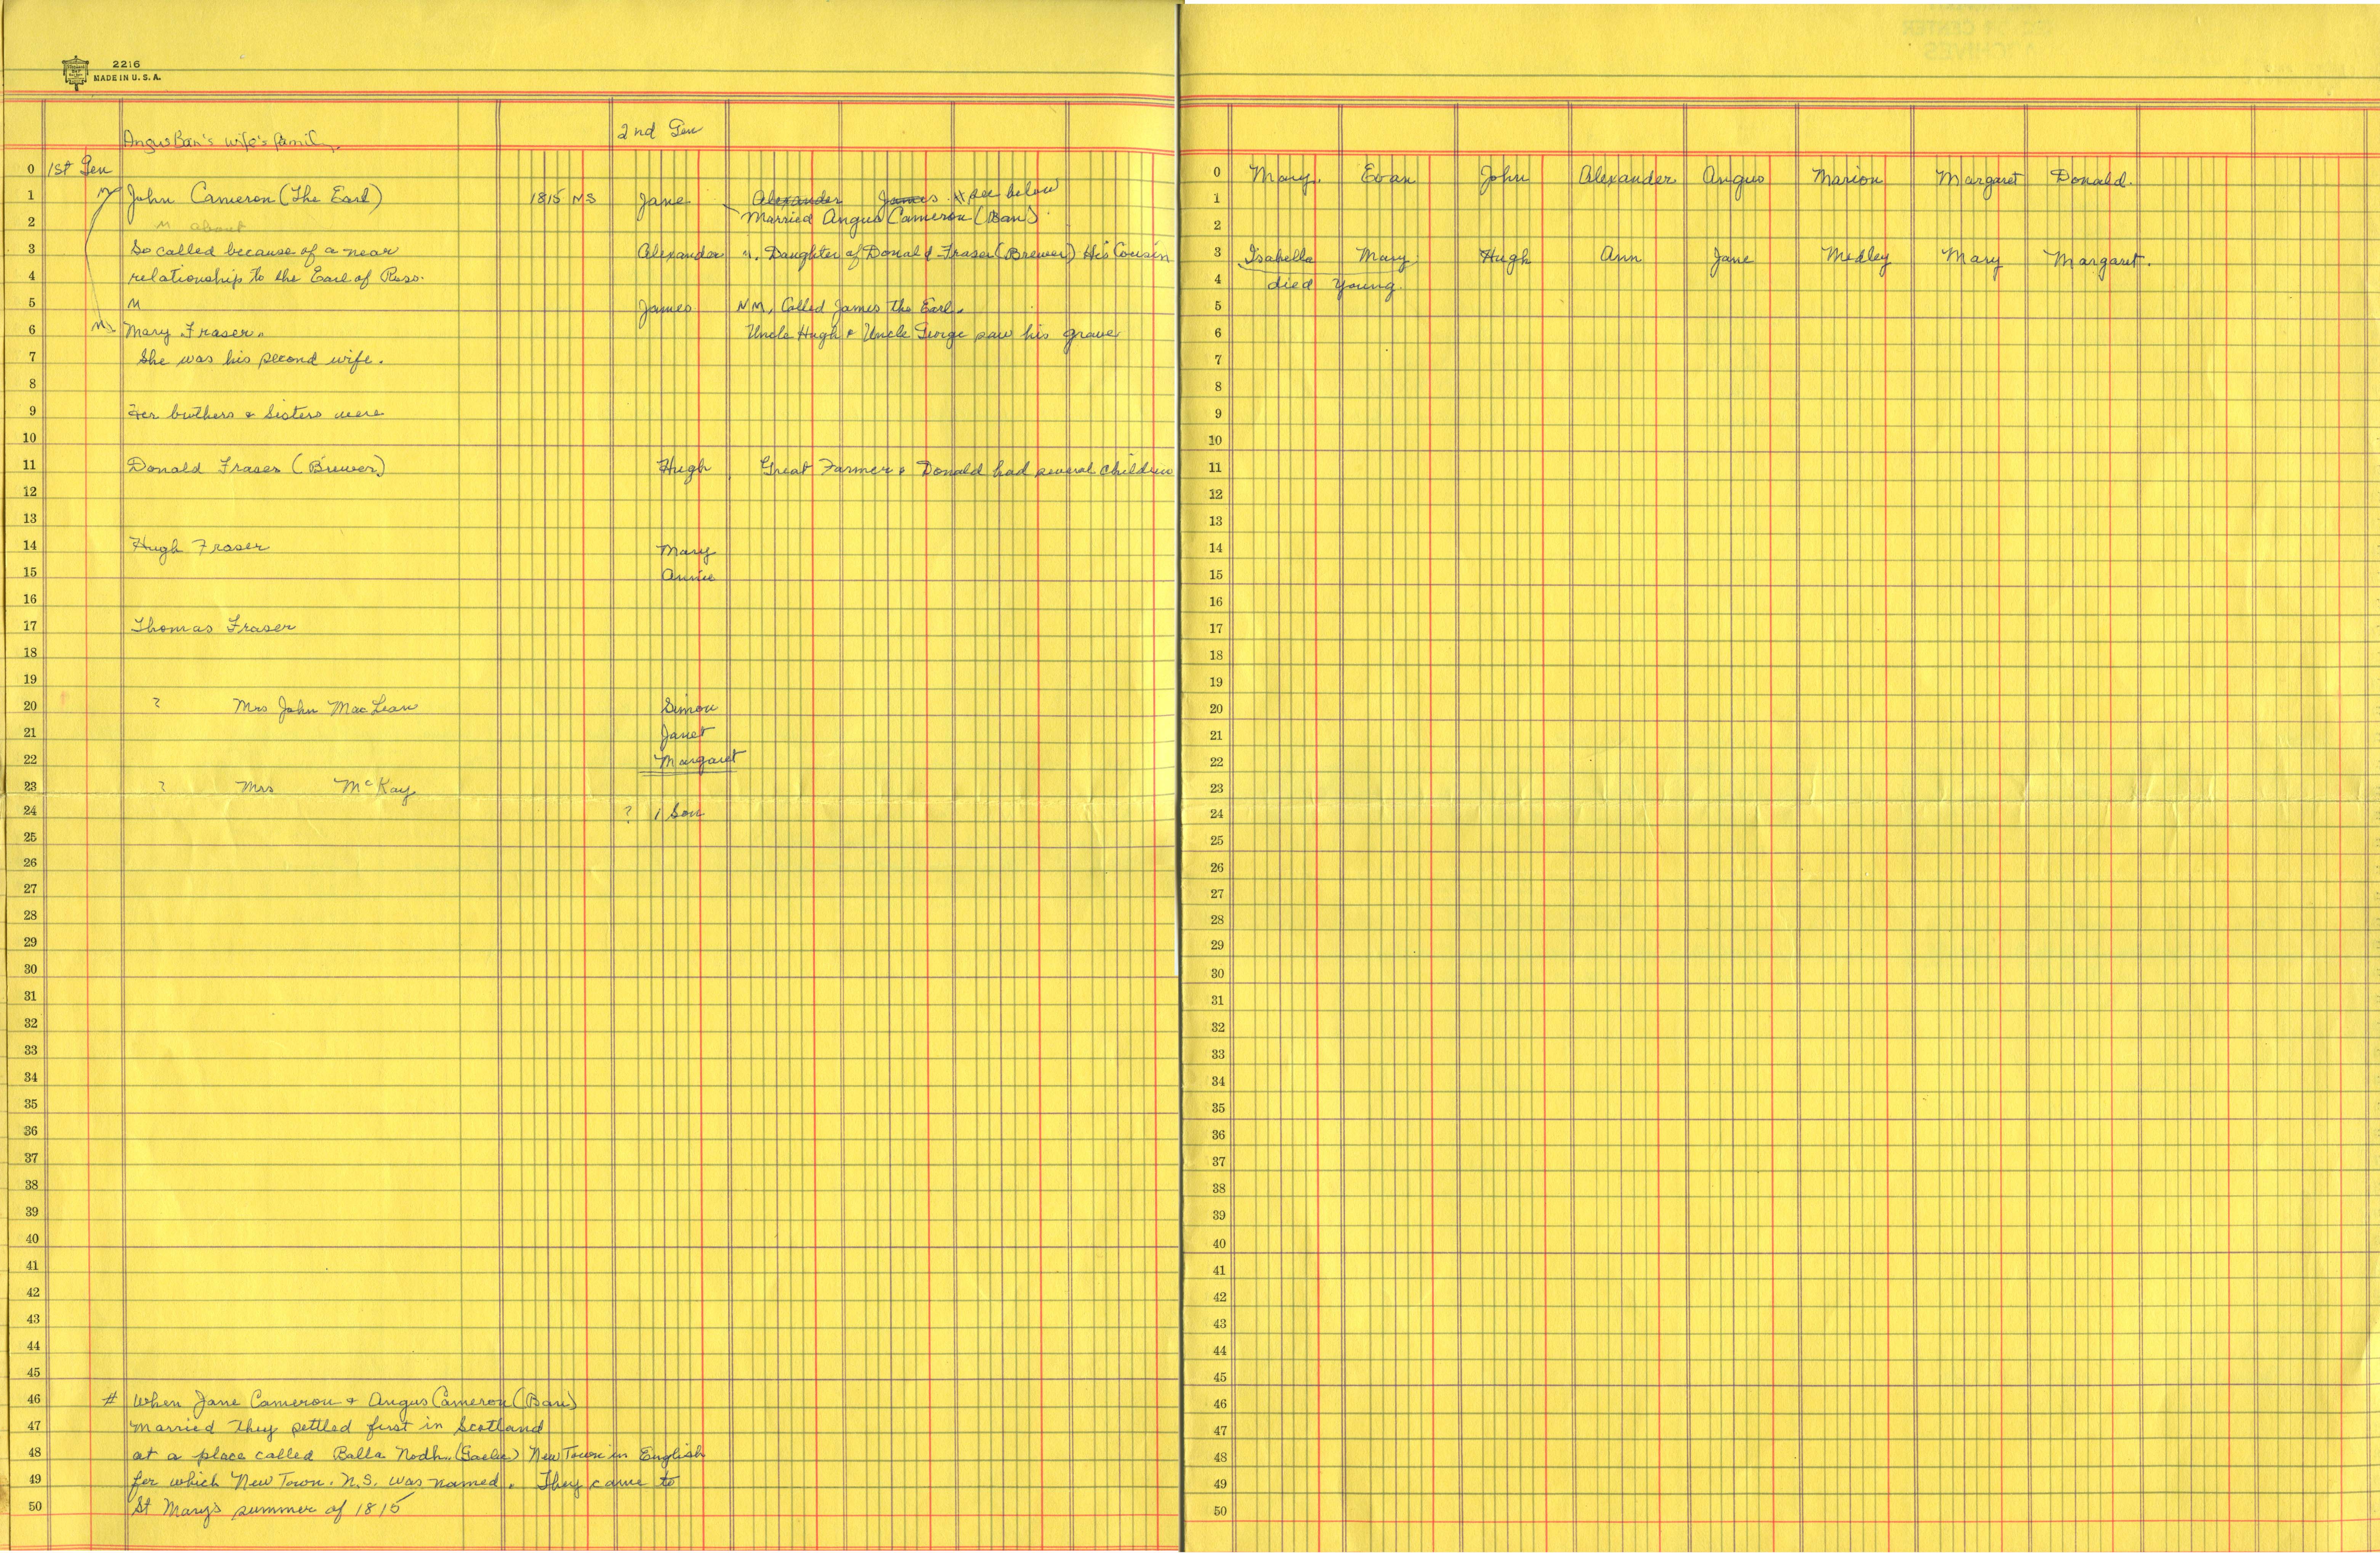 2216
MADE IN U. S. A.
Angus Ban's wife's family
2nd Gen
0 1st Gen
1 John Cameron (The Earl) 1815 NS Jane Alexander James # see below
2 M about Married Angus Cameron (Ban)
3 So called because of a near Alexander M. Daughter of Donald Fraser (Brewer) His Cousin
4 relationship to the Earl of Ross.
5 M James N.M. Called James the Earl.
6 M Mary Fraser. Uncle Hugh & Uncle George saw his grave
7 She was his second wife.
8
9 Her brothers & Sisters were
10
11 Donald Fraser (Brewer) Hugh Great Farmer & Donald had several children
12
13
14 Hugh Fraser Mary
15 Annie
16
17 Thomas Fraser
18
19
20 ? Mrs John MacLean Simon
21 Janet
22 Margaret
23 ? Mrs McKay
24 ? 1 Son
25
26
27
28
29
30
31
32
33
34
35
36
37
38
39
40
41
42
43
44
45
46 # When Jane Cameron & Angus Cameron (Ban)
47 married they settled first in Scotland
48 at a place called Balla Nodh (Gaelic) New Town in English
49 for which New Town. N.S. was named. They came to
50 St Marys summer of 1815
0 Mary. Evan John Alexander Angus Marion Margaret Donald.
1
2
3 Isabella Mary Hugh Ann Jane Medley Mary Margaret.
4 died young.
5
6
7
8
9
10
11
12
13
14
15
16
17
18
19
20
21
22
23
24
25
26
27
28
29
30
31
32
33
34
35
36
37
38
39
40
41
42
43
44
45
46
47
48
49
50